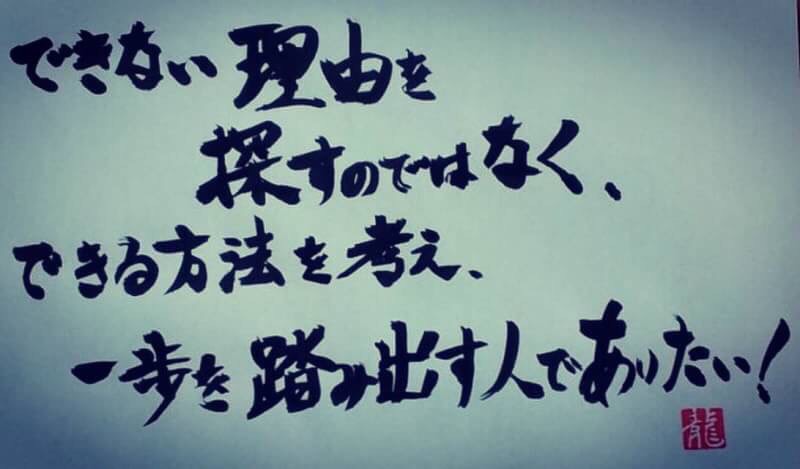 できない理由を
探すのではなく、
できる方法を考え、
一歩を踏み出す人でありたい!
龍